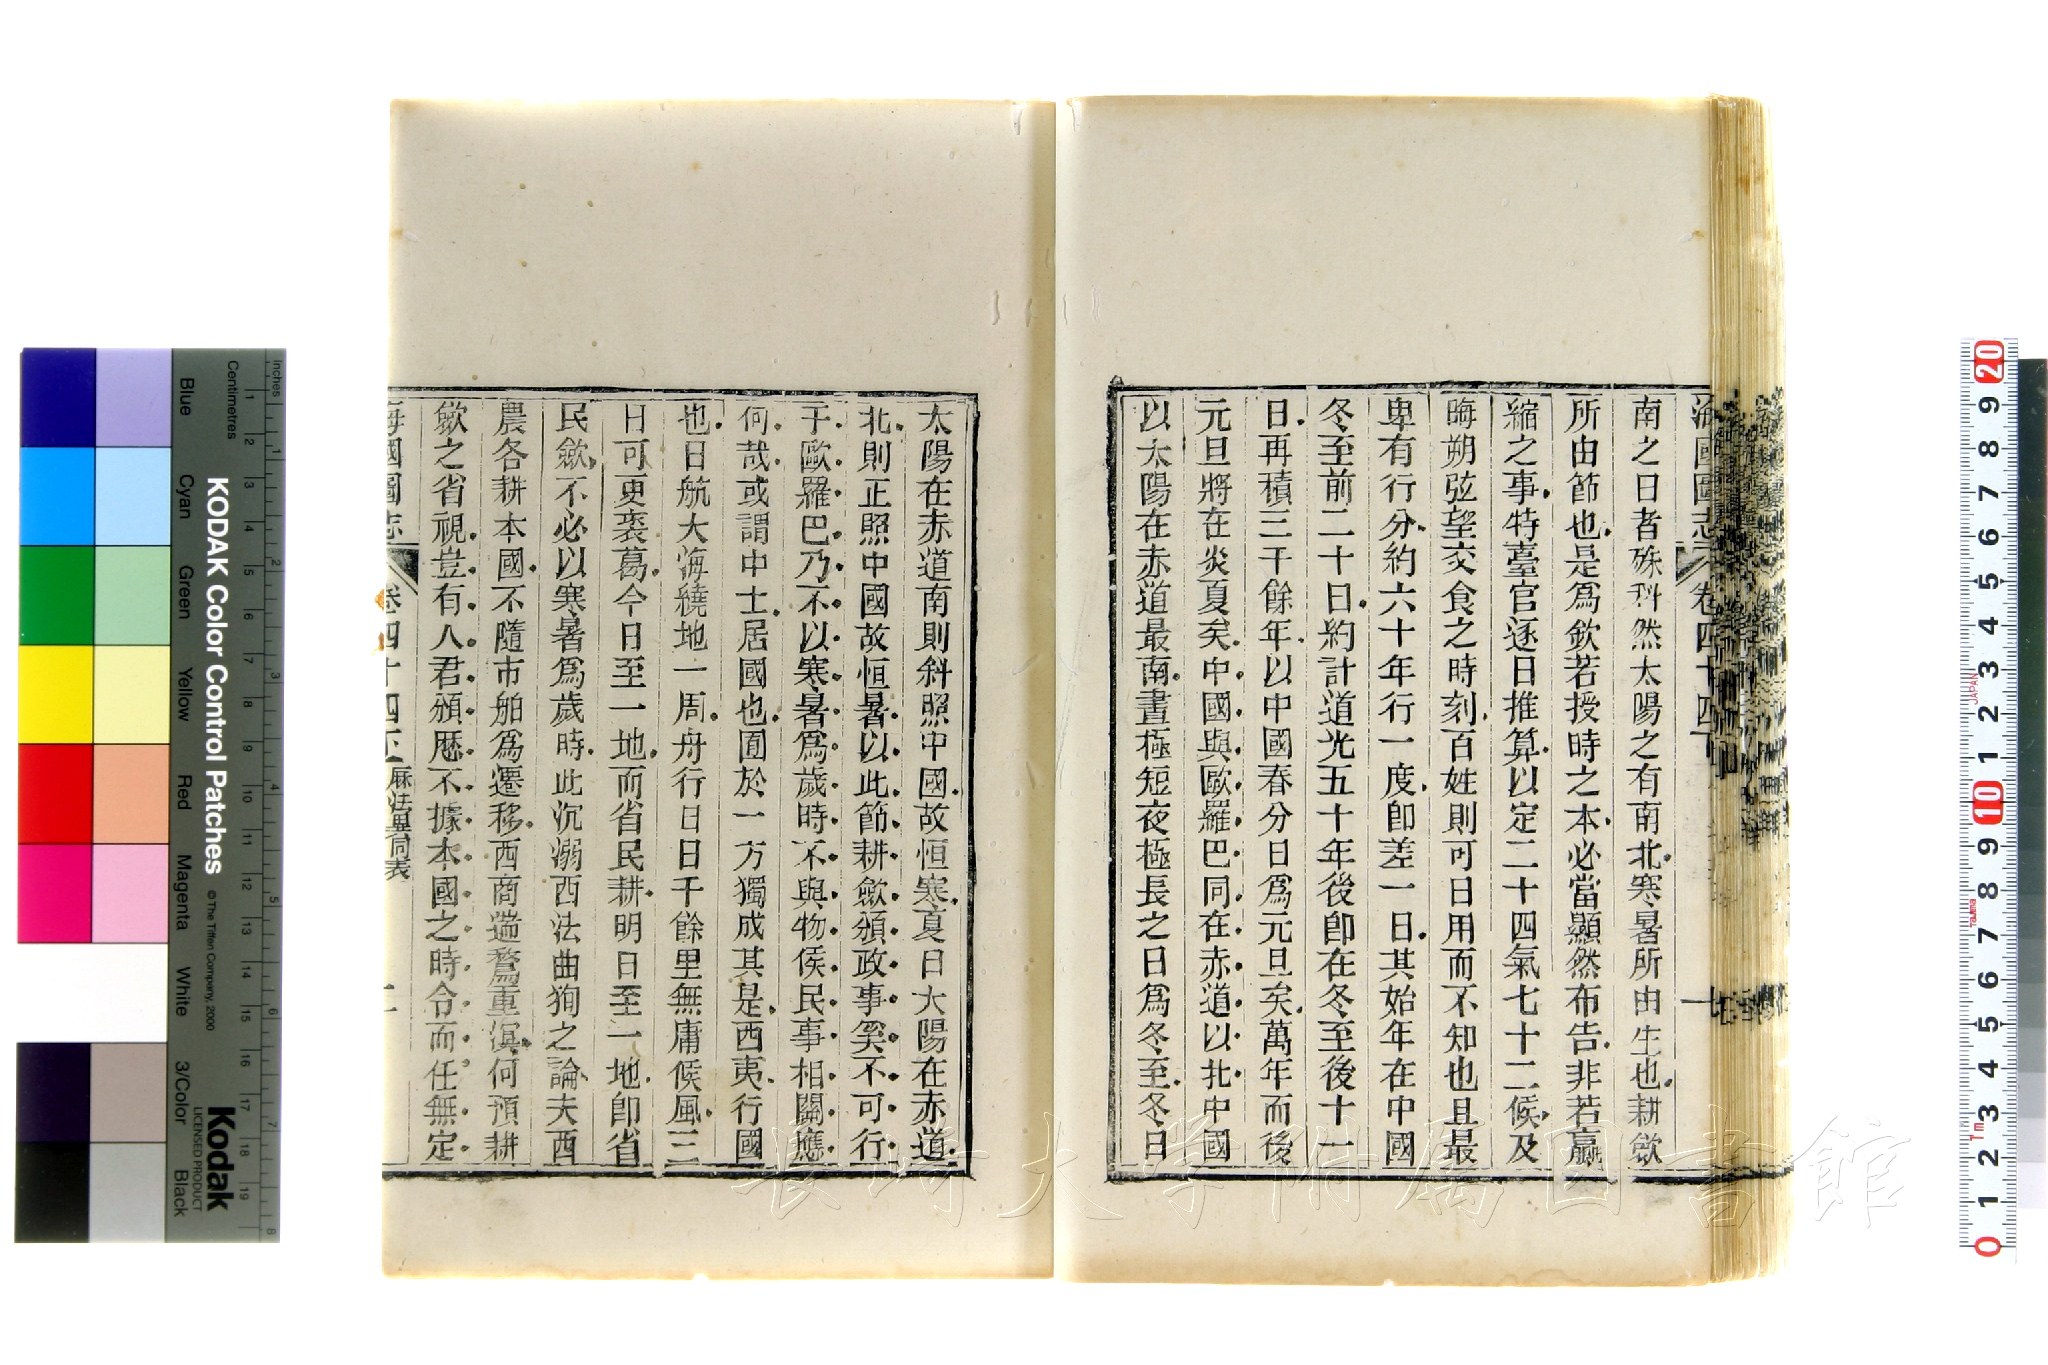 海國圖志 卷四十四下
南之日者殊科然太陽之有南北寒暑所由生也耕斂
所由節也是爲欽若授時之本必當顯然布告非若贏
縮之事特臺官逐日推算以定二十四氣七十二候及
晦朔弦望交食之時刻百姓則可日用而不知也且最
卑有行分約六十年行一度卽差一日其始年在中國
冬至前二十日約計道光五十年後卽在冬至後十一
日再積三千餘年以中國春分日爲元旦矣萬年而後
元旦將在炎夏矣中國與歐羅巴同在赤道以北中國
以太陽在赤道最南晝極短夜極長之日爲冬至冬日
太陽在赤道南則斜照中國故恒寒夏日太陽在赤道
北則正照中國故恒暑以此節耕斂頒政事矣不可行
于歐羅巴乃不以寒暑爲歲時不與物侯民事相關應
何哉或謂中士居國也囿於一方獨成其是西夷行國
也日航大海繞地一周舟行日日千餘里無庸候風三
日可更裘葛今日至一地而省民耕明日至一地卽省
民斂不必以寒暑爲歲時此沉溺西法曲狥之論夫西
農各耕本國不隨市舶爲遷移西商遊騖重溟何預耕
斂之省視豈有人君頒厯不據本國之時令而任無定
海國圖志 卷四十四下
KODAK Color Control Patches
© The Tiffen Company, 2000
Kodak
LICENSED PRODUCT
Inches
Centimetres
Blue Cyan Green Yellow Red Magenta White 3/Color Black
1 2 3 4 5 6 7 8
1 2 3 4 5 6 7 8 9 10 11 12 13 14 15 16 17 18 19
0 1 2 3 4 5 6 7 8 9 10 1 2 3 4 5 6 7 8 9 20
JAPAN
長崎大学附属図書館